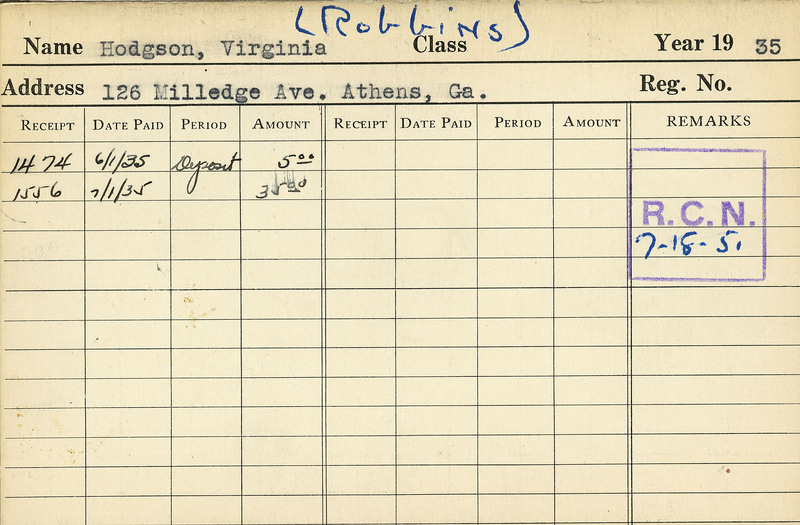 (Robbins)
Name Hodgson, Virginia Class Year 19 35
Address 126 Milledge Ave. Athens, Ga. Reg. No.
RECEIPT DATE PAID PERIOD AMOUNT RECEIPT DATE PAID PERIOD AMOUNT REMARKS
1474 6/1/35 Deposit 5.00
1556 7/1/35 35.00
R.C.N.
7-18-51